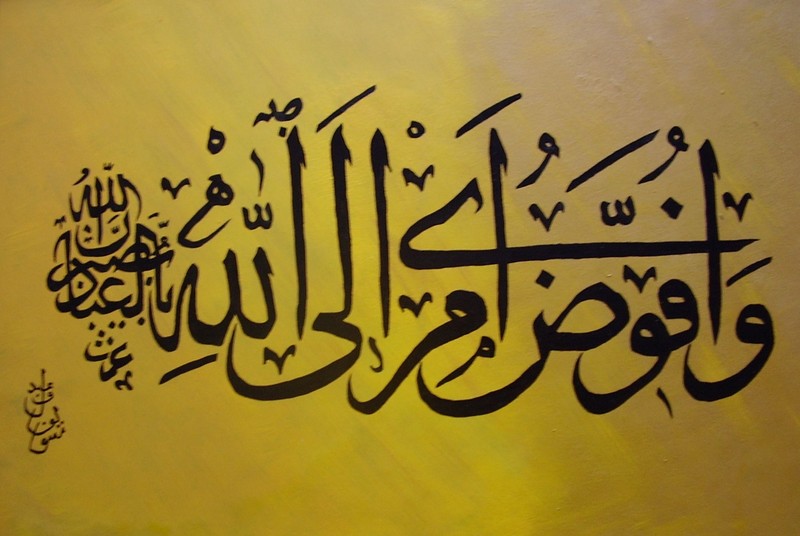 وَأُفَوِّضُ أَمْرِي إِلَى اللّٰهِ
إِنَّ اللّٰهَ بَصِيرٌ بِالْعِبَادِ